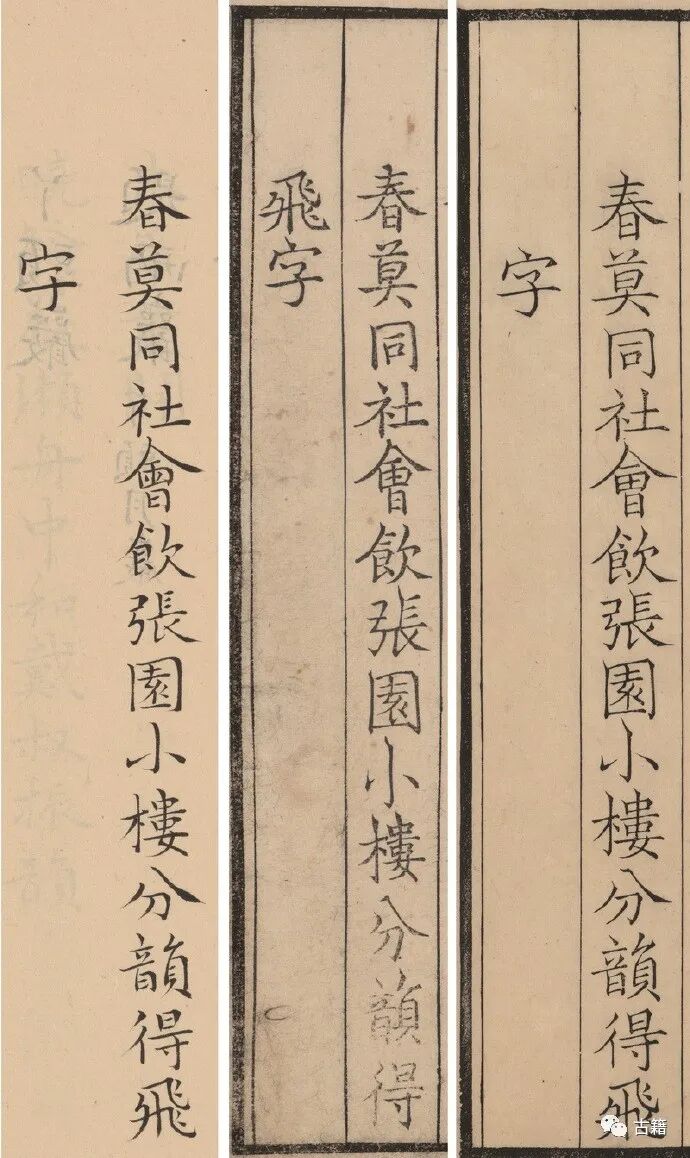 春莫同社會飲張園小樓分韻得飛
字
春莫同社會飲張園小樓分韻得
飛字
春莫同社會飲張園小樓分韻得飛
字
古籍